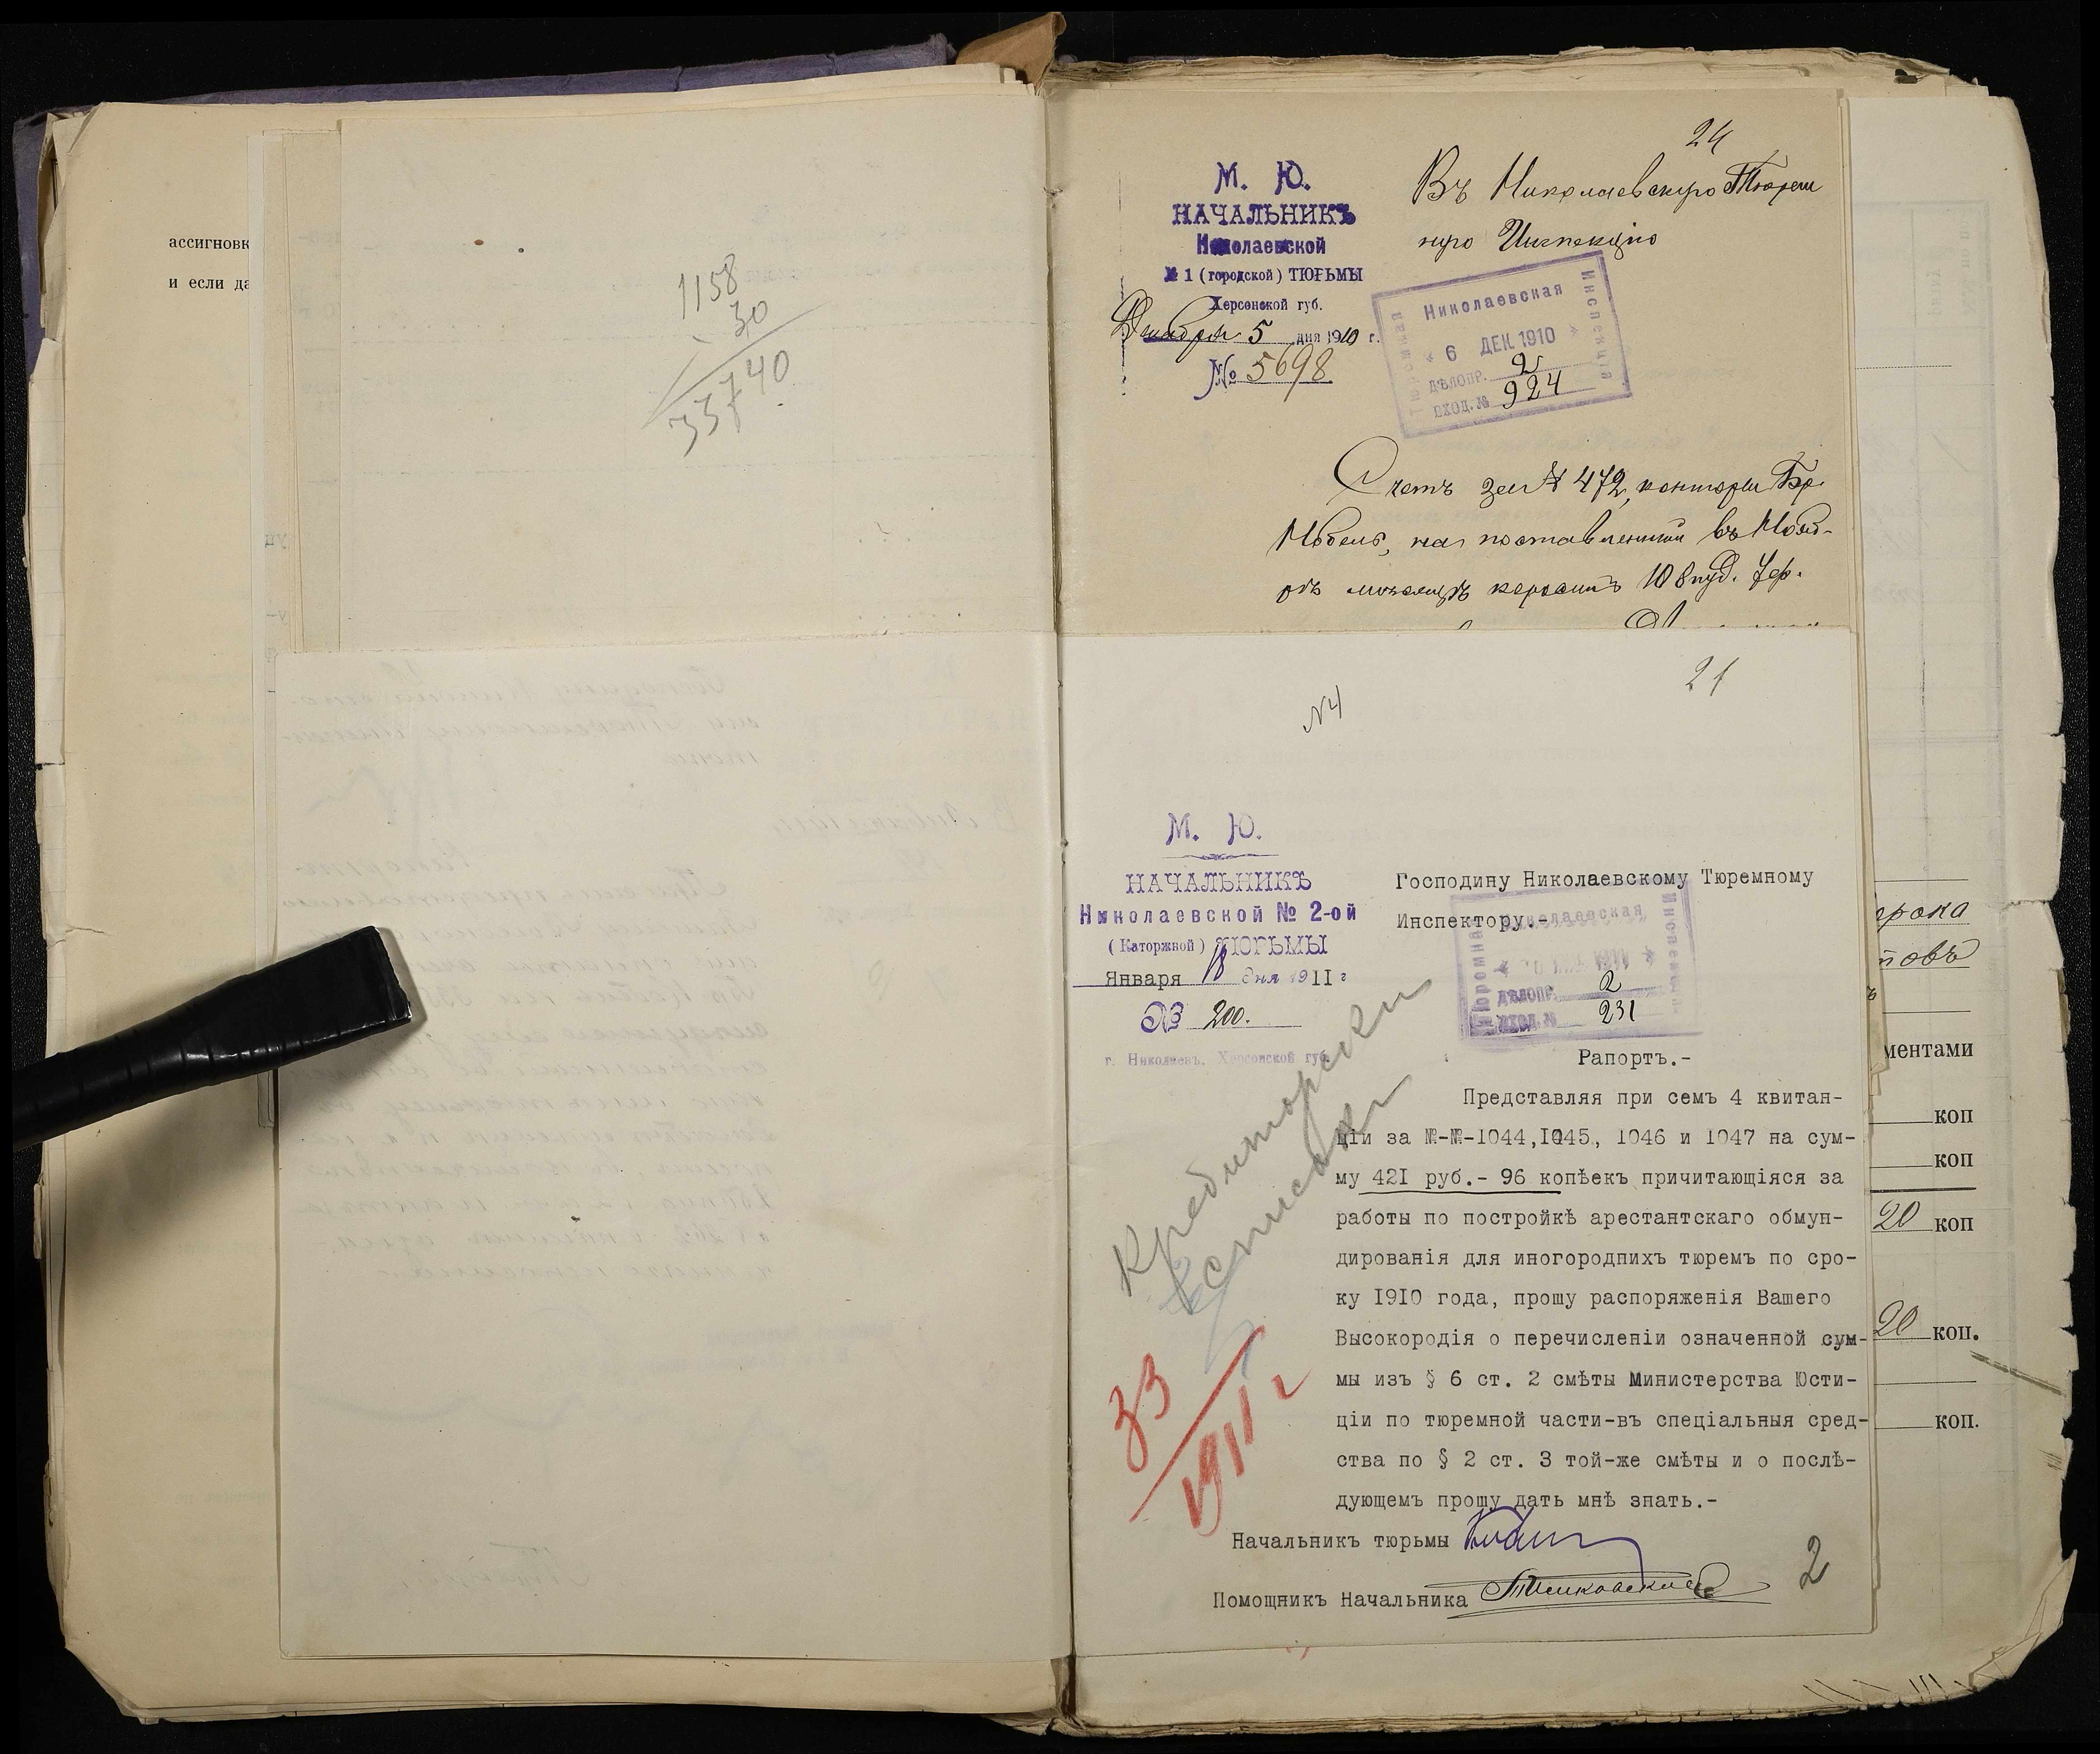 ассигновк
и если да
1158
30
33740
24
М. Ю.
НАЧАЛЬНИКЪ
Николаевской
№ 1 (городской) ТЮРЬМЫ
Херсонской губ.
Декабря 5 дня 1910 г.
№ 5698
Въ Николаевскую Тюрем
ную Инспекцію
Николаевская
Тюремная
Инспекція
6 ДЕК. 1910
ДѢЛОПР. 2
ВХОД. № 924
Счетъ за № 472, конторы Бр.
Нобель, на поставленный въ Нояб-
рѣ мѣсяцѣ керосинъ 108 пуд. 7 ф.
21
№4
М. Ю.
НАЧАЛЬНИКЪ
Николаевской № 2-ой
(Каторжной) ТЮРЬМЫ
Января 18 дня 1911 г
№ 200.
г. Николаевъ, Херсонской губ.
Господину Николаевскому Тюремному
Инспектору.-
Николаевская
Тюремная
Инспекція
ДѢЛОПР. 2
ВХОД. № 231
Рапортъ.-
Представляя при семъ 4 квитан-
ціи за №-№-1044, 1045, 1046 и 1047 на сум-
му 421 руб.- 96 копѣекъ причитающіяся за
работы по постройкѣ арестантскаго обмун-
дированія для иногороднихъ тюремъ по сро-
ку 1910 года, прошу распоряженія Вашего
Высокородія о перечисленіи означенной сум-
мы изъ § 6 ст. 2 смѣты Министерства Юсти-
ціи по тюремной части-въ спеціальныя сред-
ства по § 2 ст. 3 той-же смѣты и о послѣ-
дующемъ прошу дать мнѣ знать.-
Кредиторскій
списокъ
33
1911 г
Начальникъ тюрьмы
Помощникъ Начальника
2
рока
товъ
ментами
коп
коп
20 коп
20 коп.
коп.